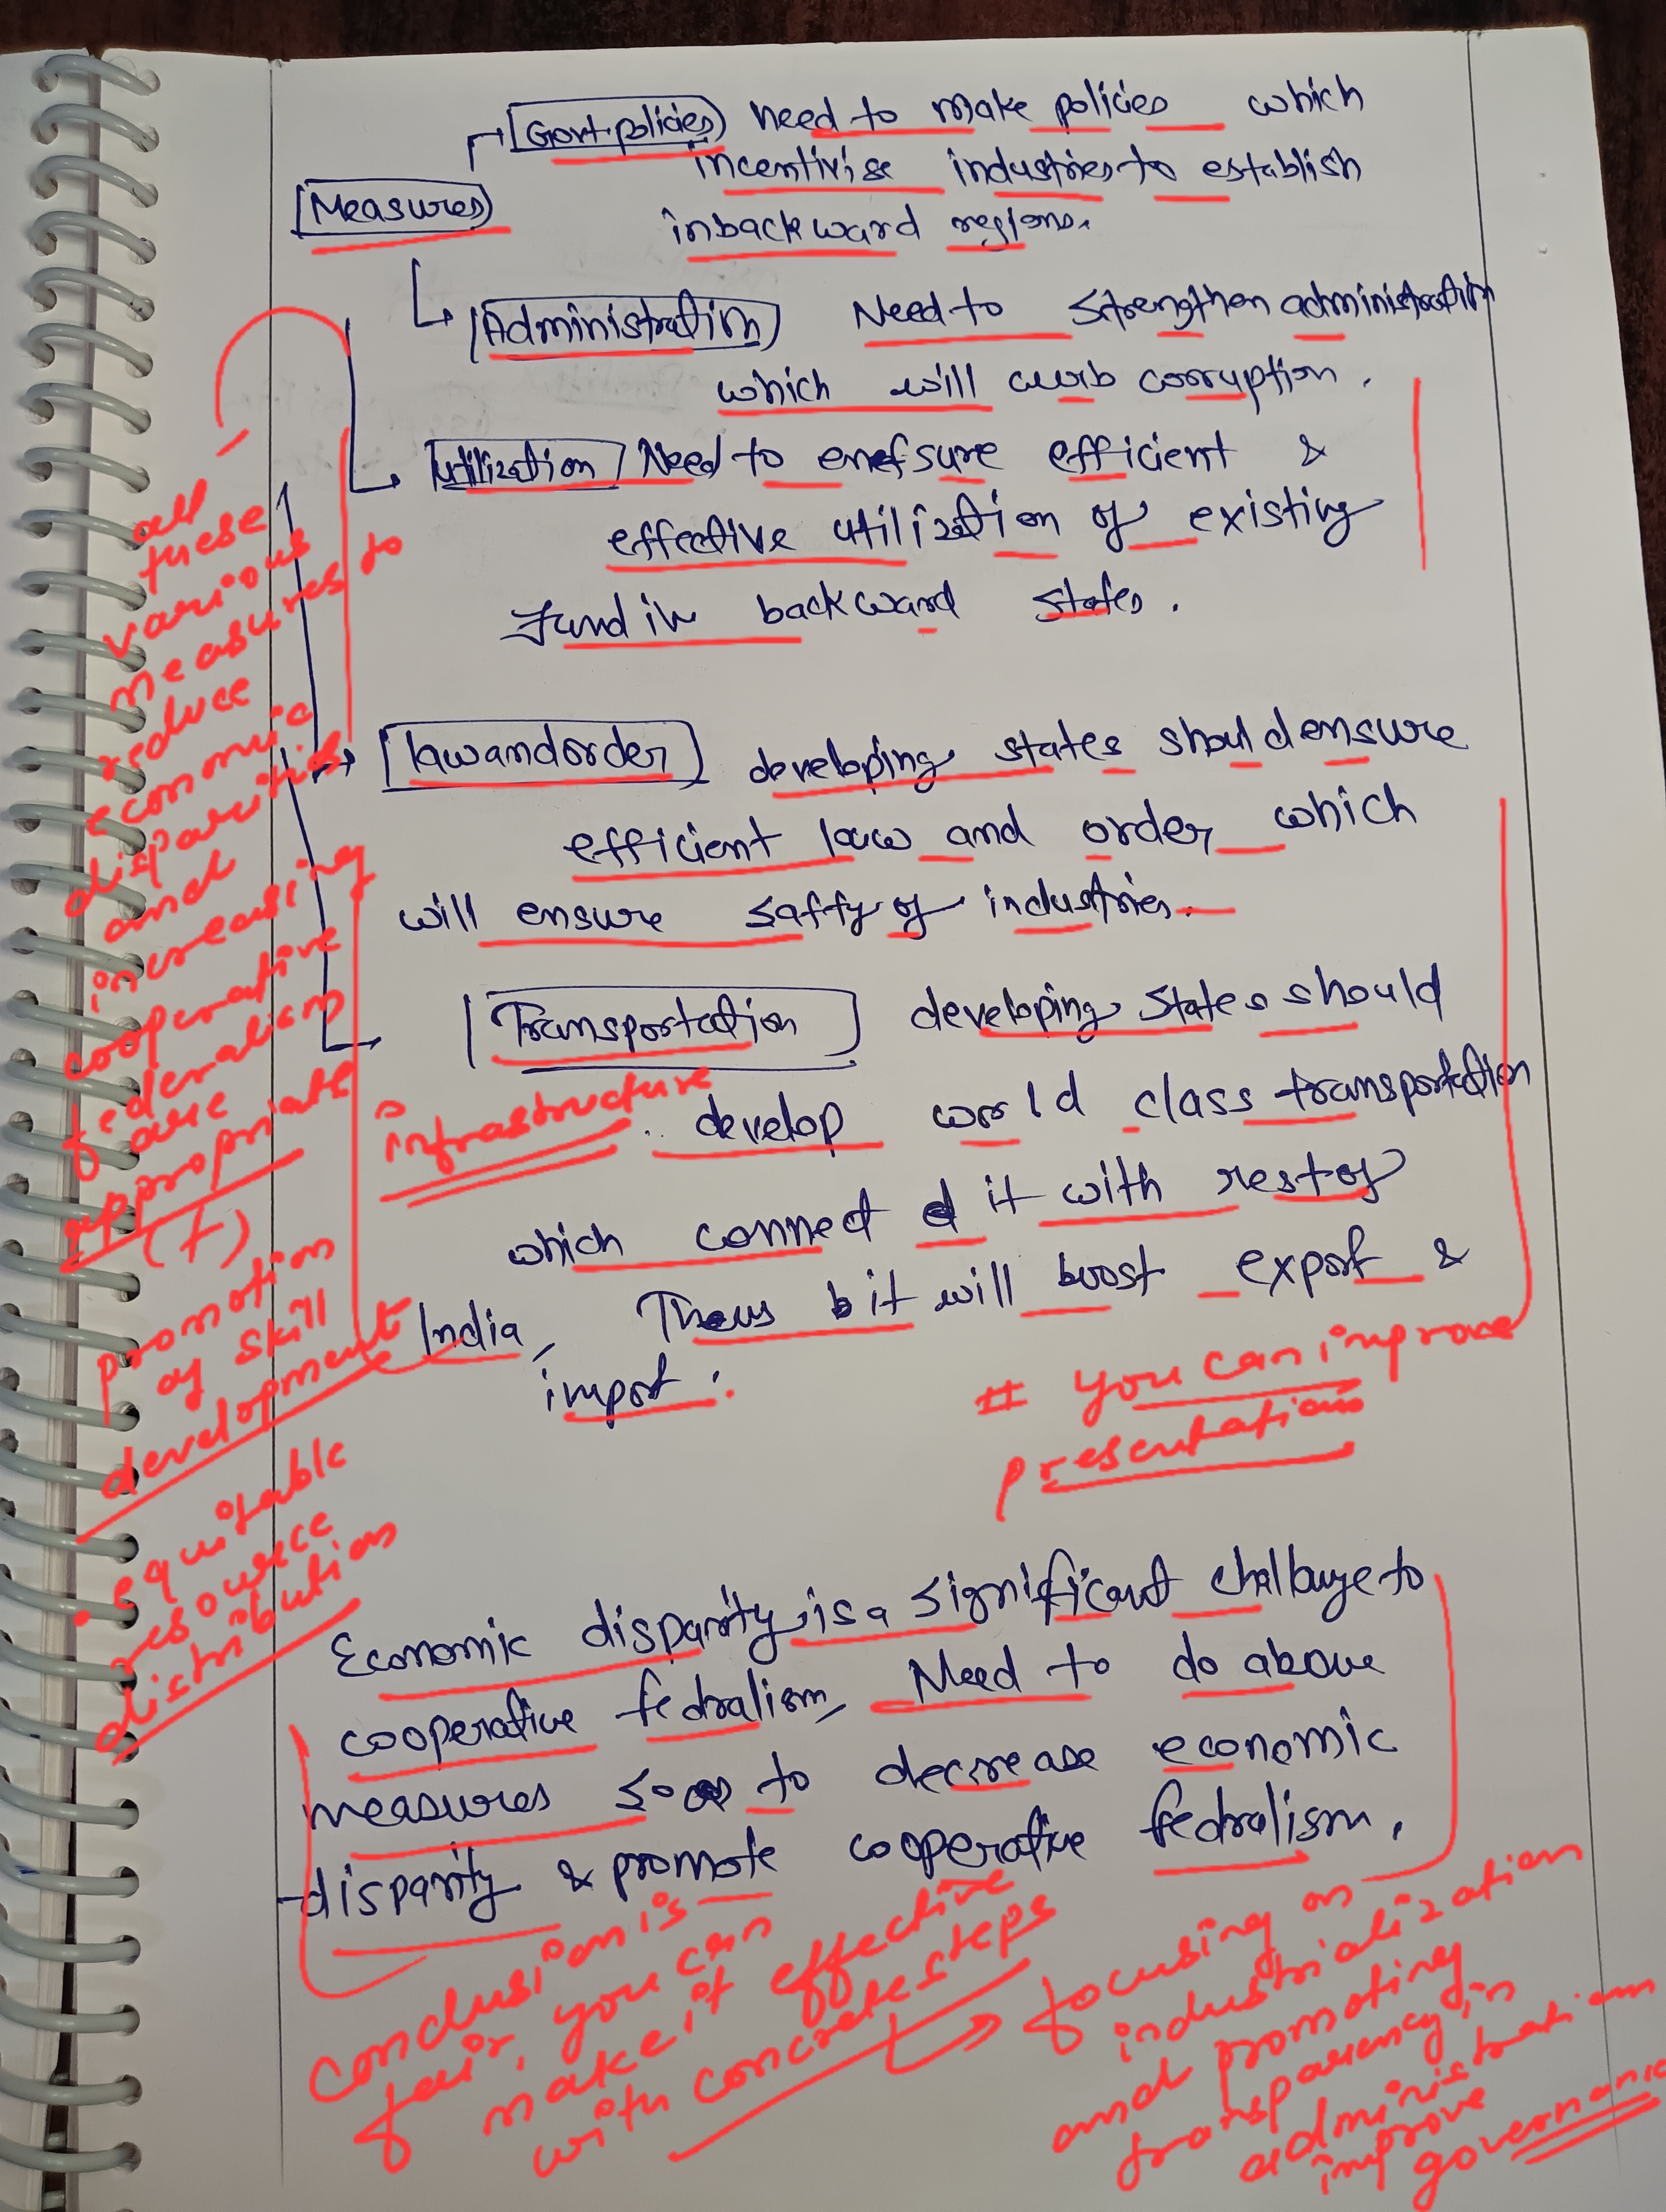 Govt policies Need to make policies which
incentivise industries to establish
Measures
in backward regions.
Administration Need to strengthen administration
which will curb corruption.
utilization Need to ensure efficient &
effective utilization of existing
Fund in backward states.
law and order developing states should ensure
efficient law and order which
will ensure safty of industries.
Transportation developing states should
infrastructure
develop world class transportation
which connect it with rest of
India, Thus it will boost export &
import.
# you can improve
presentation
all
these
various
measures to
reduce
economic
disparities
and
increasing
cooperative
federalism
are
appropriate
(+)
promotion
of skill
development
• equitable
resource
distribution
Economic disparity is a significant challange to
cooperative fedralism, Need to do above
measures so as to decrease economic
disparity & promote cooperative fedralism.
conclusion is
fair, you can
make it effective
with concrete steps
focusing on
industrialization
and promoting
transparency in
administration
improve
governance